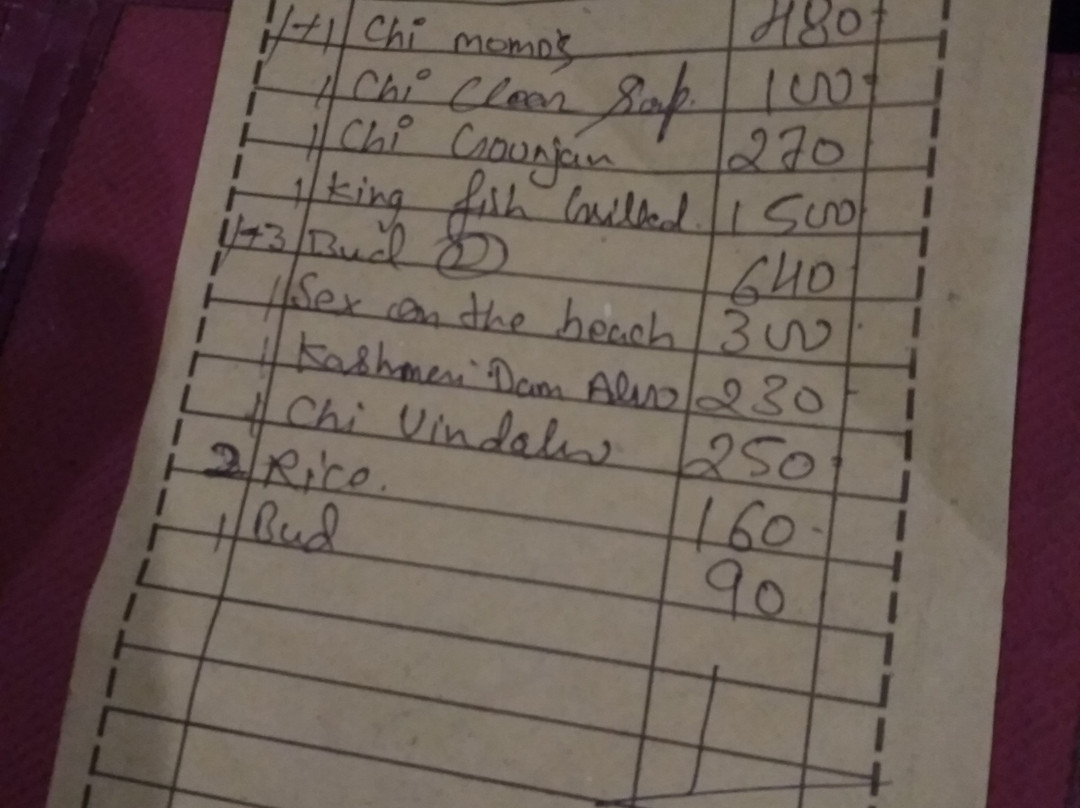 1+1 Chi momo's 480
1 Chi Clean Soup. 100
1 Chi 270
1 King fish Grilled. 1500
1+3 Bud 640
1 Sex on the beach 300
1 Kashmeri Dam Aloo 230
1 Chi Vindaloo 250
2 Rice. 160
1 Bud 90